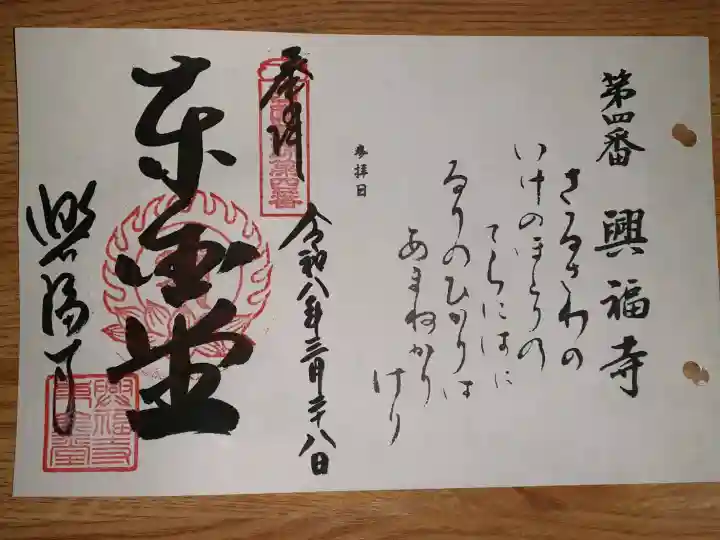 第四番 興福寺
さるさわの
いけのほとりの
てらにはに
るりのひかりは
あまねかり
けり
参拝日
令和八年三月二十八日
奉拝
東金堂
興福寺
興福寺
東金堂